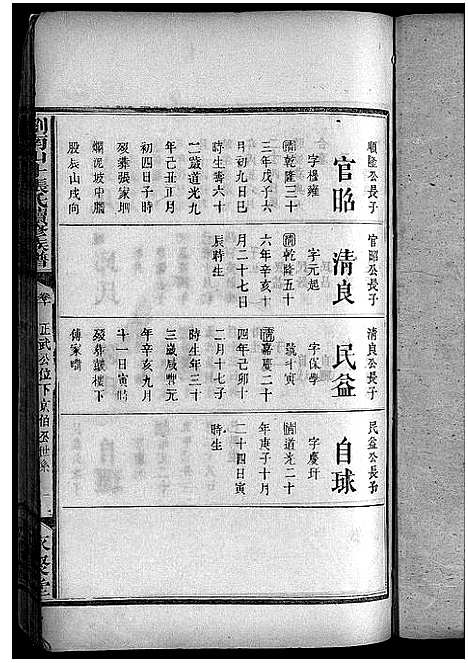 順隆公長子
官昭
字穆雍
清乾隆三十
三年戊子六
月初九日巳
時生壽六十
二歲道光九
年己丑正月
初四日子時
歿葬張家垻
爛泥坡中臈
股辰山戌向
官昭公長子
清良
字元起
清乾隆五十
六年辛亥十
月二十七日
辰時生
清良公長子
民益
字保學
號斗寅
清嘉慶二十
四年己卯十
二月十七子
時生年三十
三歲咸豐元
年辛亥九月
廿一日寅時
歿葬戲樓下
傅家嘴
民益公長子
自球
字慶玕
清道光二十
年庚子十月
二十四日寅
時生
張氏續修族譜
卷
正武公位下京伯公世系